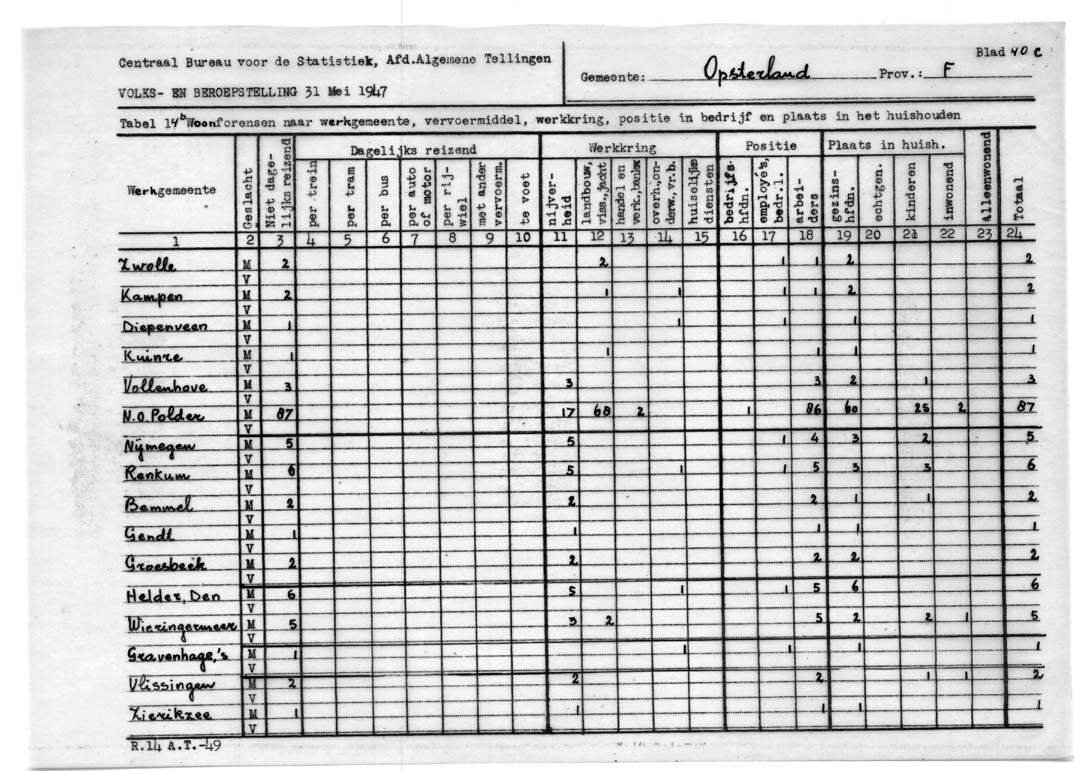 Blad 40 c
Centraal Bureau voor de Statistiek, Afd.Algemene Tellingen
Gemeente: Opsterland Prov.: F
VOLKS- EN BEROEPSTELLING 31 Mei 1947
Tabel 14b Woonforensen naar werkgemeente, vervoermiddel, werkkring, positie in bedrijf en plaats in het huishouden
Werkgemeente Geslacht Niet dage-lijks reizend Dagelijks reizend per trein per tram per bus per auto of motor per rij-wiel met ander vervoerm. te voet Werkkring nijver-heid landbouw, viss.,jacht handel en verk.,bankw overh.,on-derw.,vr.b. huiselijke diensten Positie bedrijfs-hfdn. employé's, bedr.l. arbei-ders Plaats in huish. gezins-hfdn. echtgen. kinderen inwonend Alleenwonend Totaal
1 2 3 4 5 6 7 8 9 10 11 12 13 14 15 16 17 18 19 20 21 22 23 24
Zwolle M 2 2 1 1 2 2
V
Kampen M 2 1 1 1 1 2 2
V
Diepenveen M 1 1 1 1 1
V
Kuinre M 1 1 1 1 1
V
Vollenhove M 3 3 3 2 1 3
V
N.O.Polder M 87 17 68 2 1 86 60 25 2 87
V
Nijmegen M 5 5 1 4 3 2 5
V
Renkum M 6 5 1 1 5 3 3 6
V
Bemmel M 2 2 2 1 1 2
V
Gendt M 1 1 1 1 1
V
Groesbeek M 2 2 2 2 2
V
Helder, Den M 6 5 1 1 5 6 6
V
Wieringermeer M 5 3 2 5 2 2 1 5
V
Gravenhage,'s M 1 1 1 1 1
V
Vlissingen M 2 2 2 1 1 2
V
Zierikzee M 1 1 1 1 1
V
R.14 A.T.-49